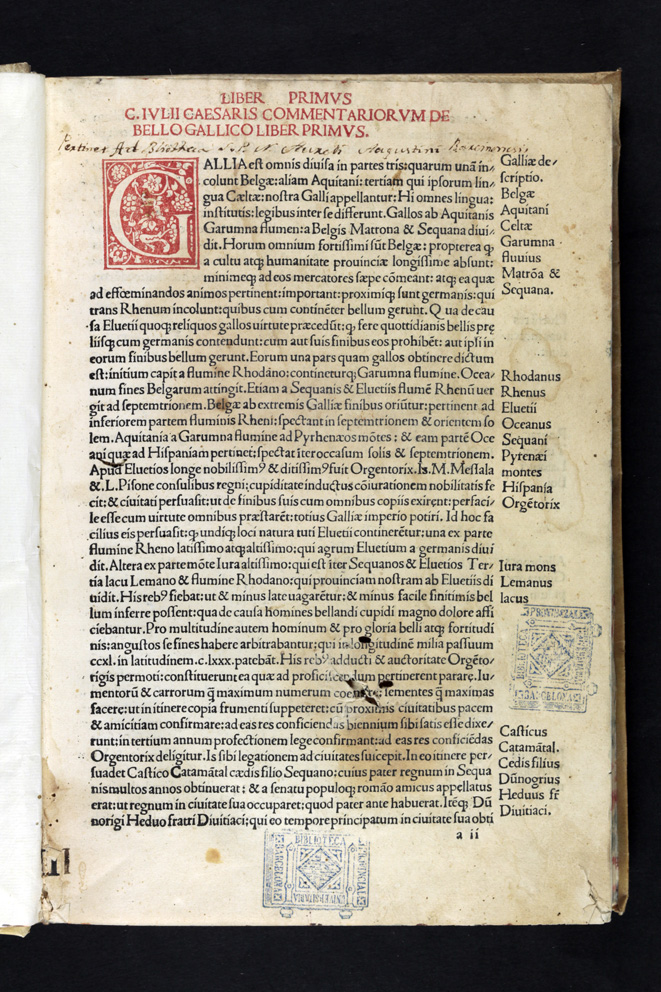 LIBER PRIMVS
C. IVLII CAESARIS COMMENTARIORVM DE
BELLO GALLICO LIBER PRIMVS.
Pertinet Bibliotheca S. P. N. Aureli Augustini
GALLIA est omnis diuisa in partes tris: quarum unā in/
colunt Belgæ: aliam Aquitani: tertiam qui ipsorum lin/
gua Cæltæ: nostra Galli appellantur: Hi omnes lingua:
institutis: legibus inter se differunt. Gallos ab Aquitanis
Garumna flumen: a Belgis Matrona & Sequana diui/
dit. Horum omnium fortissimi sūt Belgæ: propterea q̨
a cultu atq; humanitate prouinciæ longissime absunt:
minimeq; ad eos mercatores sæpe cōmeant: atq; ea quæ
ad effœminandos animos pertinent: important: proximiq; sunt germanis: qui
trans Rhenum incolunt: quibus cum continēter bellum gerunt. Qua de cau
sa Eluetii quoq; reliquos gallos uirtute præcedūt: q; fere quottidianis bellis prę
liisq; cum germanis contendunt: cum aut suis finibus eos prohibēt: aut ipsi in
eorum finibus bellum gerunt. Eorum una pars quam gallos obtinere dictum
est: initium capit a flumine Rhodano: contineturq; Garumna flumine. Ocea/
num fines Belgarum attingit. Etiam a Sequanis & Eluetiis flumē Rhenū uer
git ad septemtrionem. Belgæ ab extremis Galliæ finibus oriūtur: pertinent ad
inferiorem partem fluminis Rheni: spectant in septemtrionem & orientem so
lem. Aquitania a Garumna flumine ad Pyrhenæos mōtes: & eam partē Oce
ani quæ ad Hispaniam pertinet: spectat īter occasum solis & septemtrionem.
Apud Eluetios longe nobilissim9 & ditissim9 fuit Orgentorix. Is. M. Messala
&. L. Pisone consulibus regni: cupiditate inductus cōiurationem nobilitatis fe
cit: & ciuitati persuasit: ut de finibus suis cum omnibus copiis exirent: perfaci/
le esse cum uirtute omnibus præstarēt: totius Galliæ imperio potiri. Id hoc fa
cilius eis persuasit: q̨ undiq; loci natura tuti Eluetii continerētur: una ex parte
flumine Rheno latissimo atq; altissimo: qui agrum Eluetium a germanis diui
dit. Altera ex parte mōte Iura altissimo: qui est īter Sequanos & Eluetios Ter/
tia lacu Lemano & flumine Rhodano: qui prouinciam nostram ab Eluetiis di
uidit. His reb9 fiebat: ut & minus late uagarētur: & minus facile finitimis bel
lum inferre possent: qua de causa homines bellandi cupidi magno dolore affi
ciebantur. Pro multitudine autem hominum & pro gloria belli atq; fortitudi
nis: angustos se fines habere arbitrabantur: qui in longitudinē milia passuum
ccxl. in latitudinem. c. lxxx. patebāt. His reb9 adducti & auctoritate Orgēto/
rigis permoti: constituerunt ea quæ ad proficiscendum pertinerent parare. Iu/
mentorū & carrorum q̄ maximum numerum coemere: sementes q̄ maximas
facere: ut in itinere copia frumenti suppeteret: cū proximis ciuitatibus pacem
& amicitiam confirmare: ad eas res conficiendas biennium sibi satis esse dixe/
runt: in tertium annum profectionem lege confirmant: ad eas res conficiēdas
Orgentorix deligitur. Is sibi legationem ad ciuitates suscipit. In eo itinere per/
suadet Castico Catamātal cædis filio Sequano: cuius pater regnum in Sequa
nis multos annos obtinuerat: & a senatu populoq; romāo amicus appellatus
erat: ut regnum in ciuitate sua occuparet: quod pater ante habuerat. Itēq; Dū
norigi Heduo fratri Diuitiaci: qui eo tempore principatum in ciuitate sua obti
a ii
Galliæ de/
scriptio.
Belgæ
Aquitani
Celtæ
Garumna
fluuius
Matrōa &
Sequana.
Rhodanus
Rhenus
Eluetii
Oceanus
Sequani
Pyrenæi
montes
Hispania
Orgētorix
Iura mons
Lemanus
lacus
Casticus
Catamātal.
Cedis filius
Dūnogrius
Heduus fr̄
Diuitiaci.
BIBLIOTECA
PROVINCIAL
UNIVERSITARIA
BARCELONA
BIBLIOTECA
PROVINCIAL
UNIVERSITARIA
BARCELONA